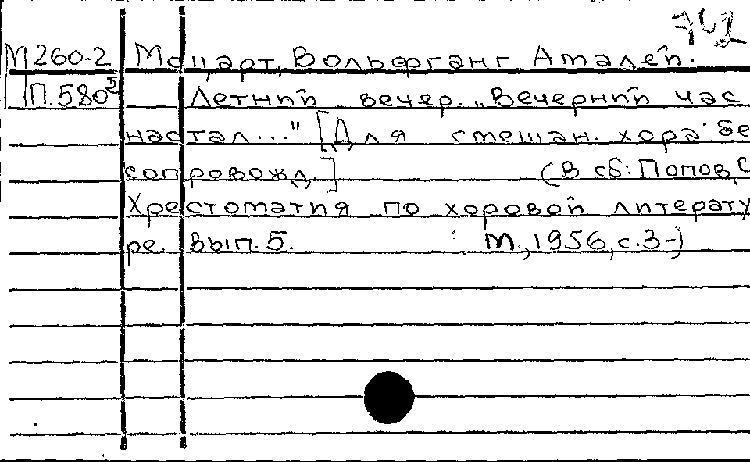 742
М260-2 Моцарт, Вольфганг Амадей.
П.580⁵ Летний вечер. „Вечерний час
настал..." [Для смешан. хора бе
сопровожд.] (В сб: Попов, С
Хрестоматия по хоровой литерату
ре. Вып. 5. М., 1956, с. 3-)